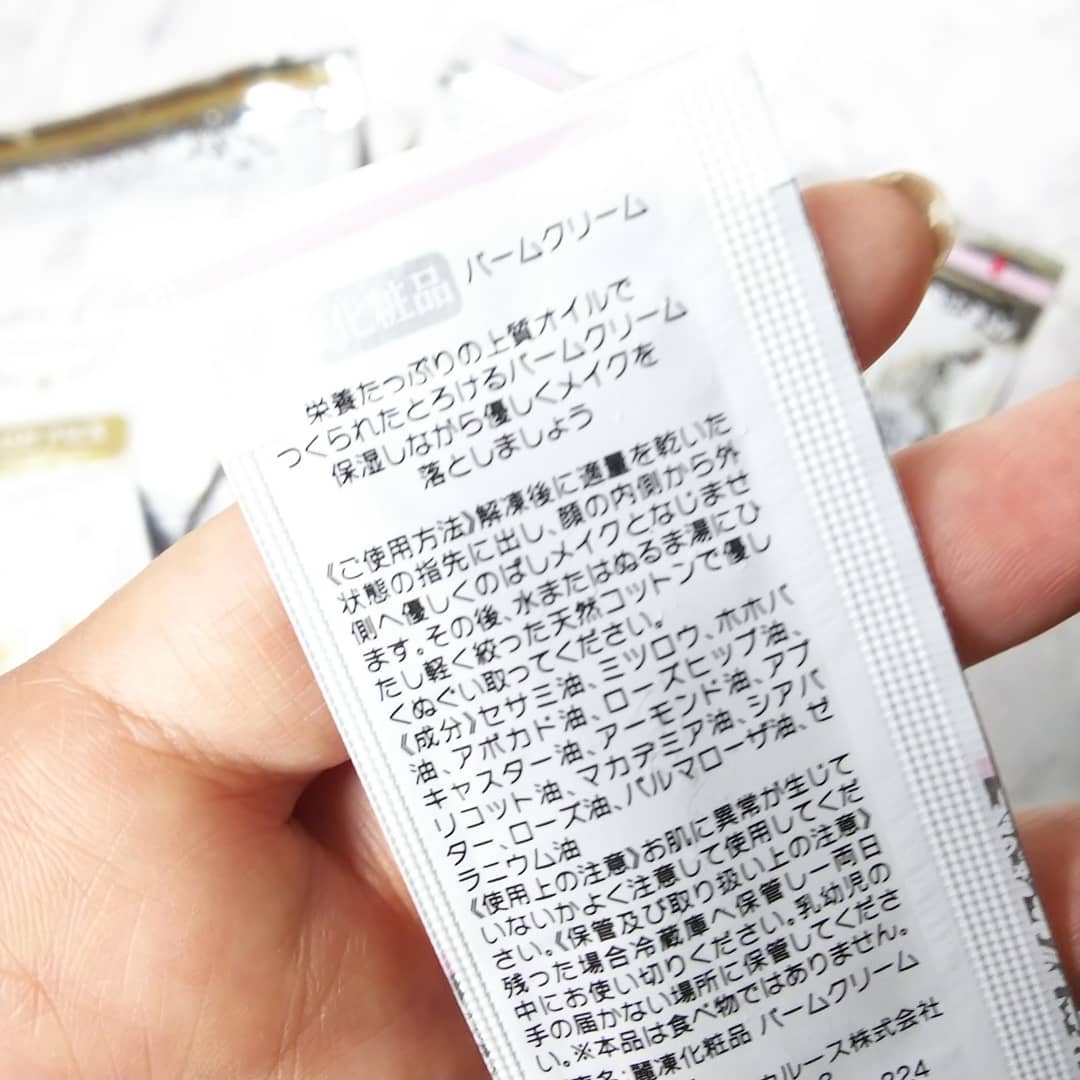 化粧品 バームクリーム
栄養たっぷりの上質オイルで
つくられたとろけるバームクリーム
保湿しながら優しくメイクを
落としましょう
《ご使用方法》解凍後に適量を乾いた
状態の指先に出し、顔の内側から外
側へ優しくのばしメイクとなじませ
ます。その後、水またはぬるま湯にひ
たし軽く絞った天然コットンで優し
くぬぐい取ってください。
《成分》セサミ油、ミツロウ、ホホバ
油、アボカド油、ローズヒップ油、
キャスター油、アーモンド油、アプ
リコット油、マカデミア油、シアバ
ター、ローズ油、パルマローザ油、ゼ
ラニウム油
《使用上の注意》お肌に異常が生じて
いないかよく注意して使用してくだ
さい。《保管及び取り扱い上の注意》
残った場合冷蔵庫へ保管し一両日
中にお使い切りください。乳幼児の
手の届かない場所に保管してくださ
い。※本品は食べ物ではありません。
名:麗凍化粧品 バームクリーム
ルース株式会社
224